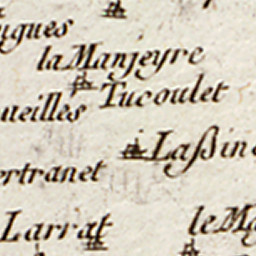 ugues
la Manjeyre
Tucoulet
ueilles
Laßin
ertranet
Larrat
le Ma